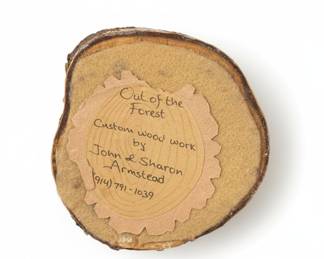 Out of the
Forest
Custom wood work
by
John & Sharon
Armstead
(914) 791-1039